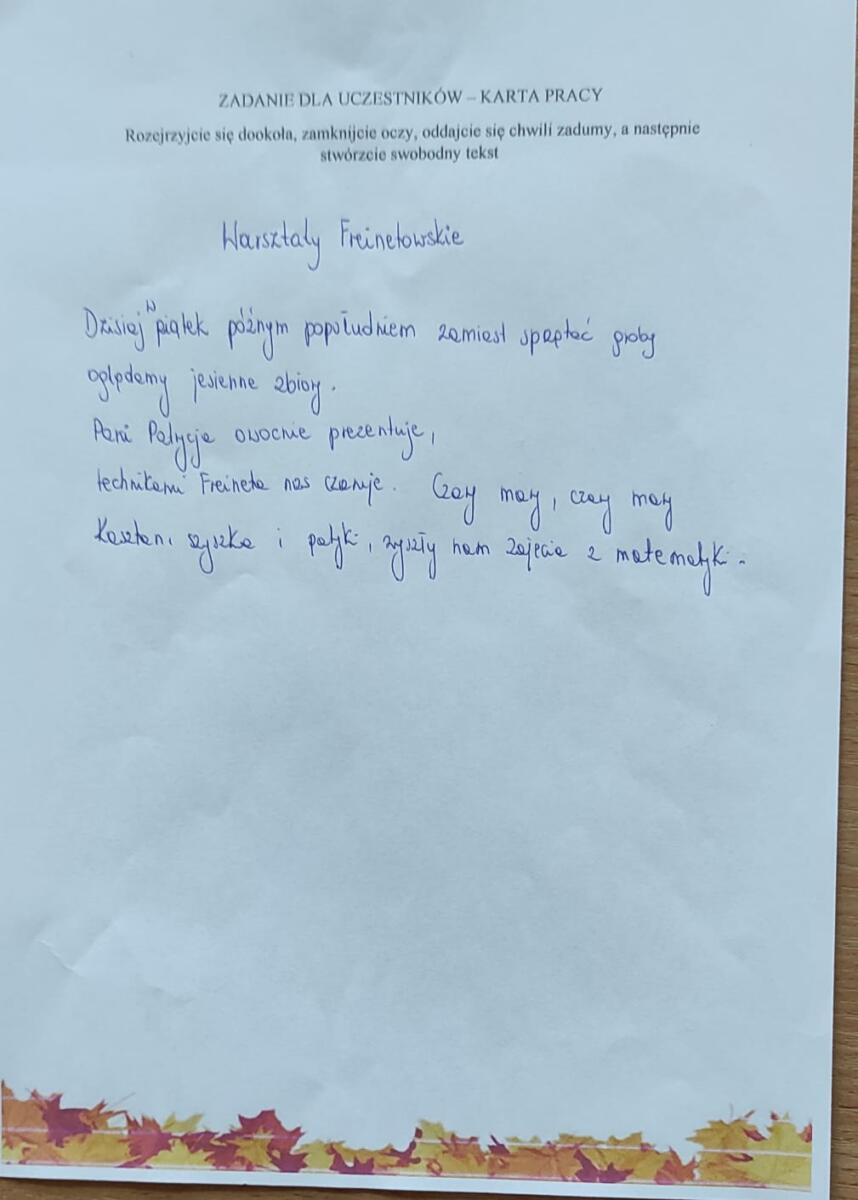 ZADANIE DLA UCZESTNIKÓW – KARTA PRACY
Rozejrzyjcie się dookoła, zamknijcie oczy, oddajcie się chwili zadumy, a następnie
stwórzcie swobodny tekst
Warsztaty Freinetowskie
Dzisiaj w piątek późnym popołudniem zamiast sprzątać groby
oglądamy jesienne zbiory.
Pani Patycja owocnie prezentuje,
technikami Freineta nas czaruje. Czary mary, czary mary
Kasztan, szyszka i patyki, zyszły nam zajęcia z matematyki.